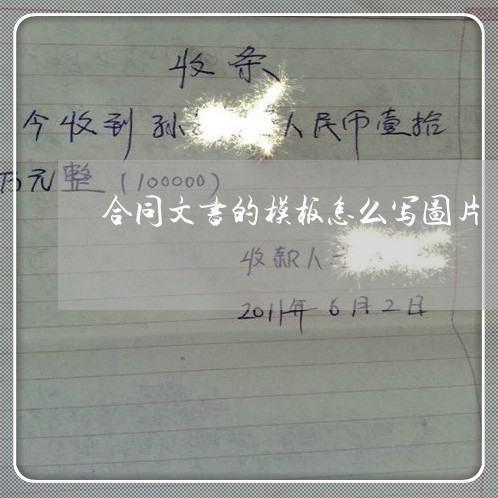 收条
今收到孙 人民币壹拾
万元整(100000)
合同文书的模板怎么写图片
收款人
2011年6月2日